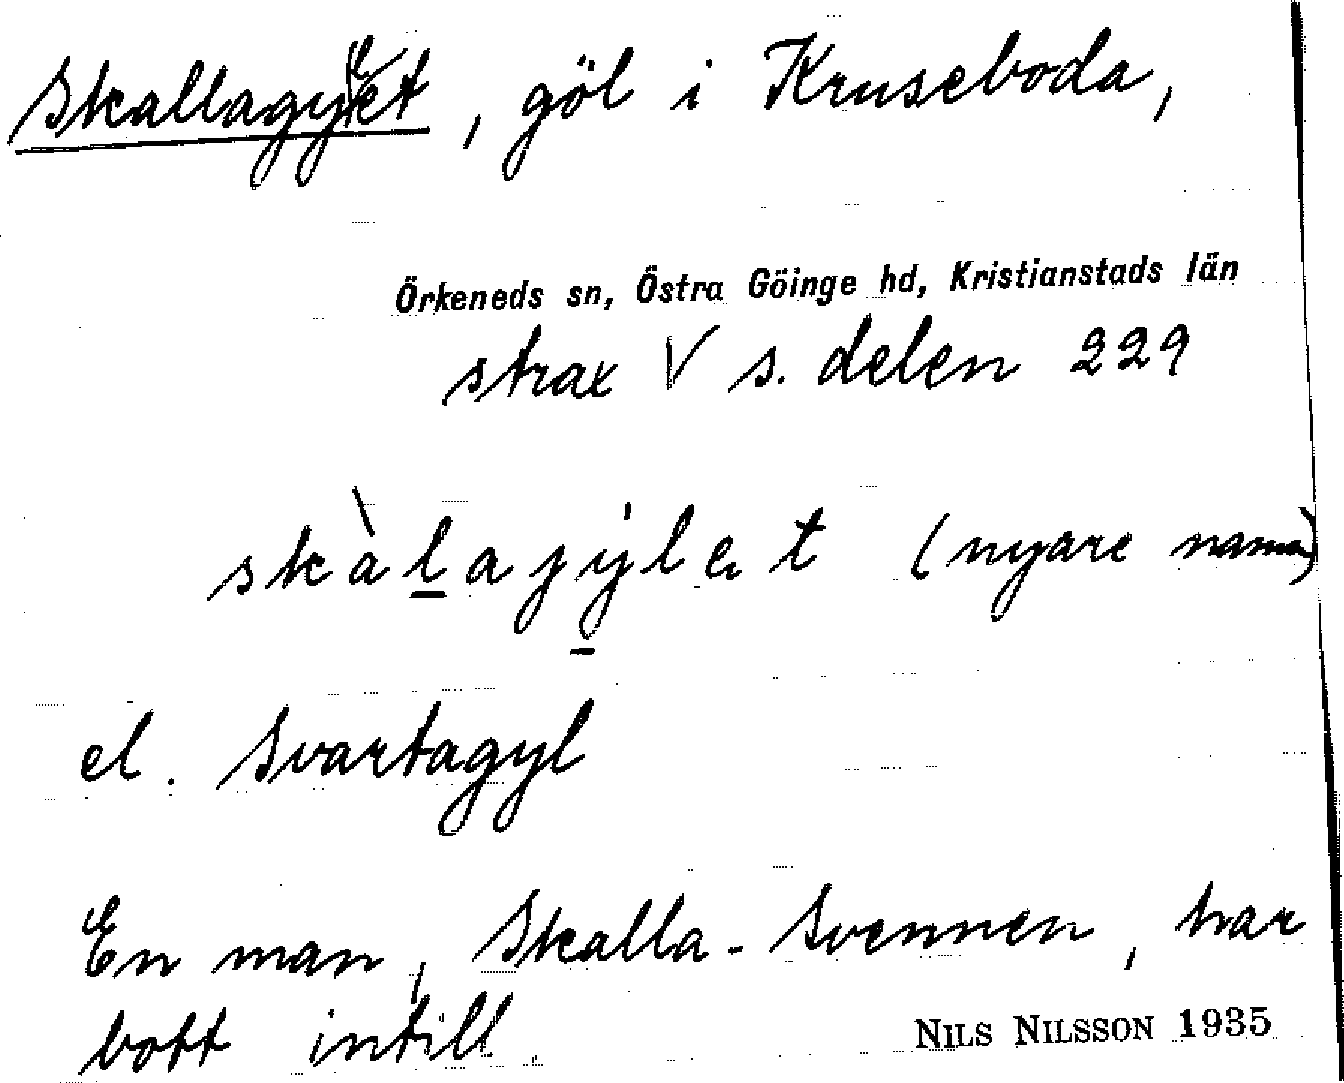 Skallagylet, göl i Kruseboda,
Örkeneds sn, Östra Göinge hd, Kristianstads län
strax V s. delen 229
skàlajýlet (nyare namn)
el. Svartagyl
En man, Skalla-Svennen, har
bott intill.
NILS NILSSON 1935